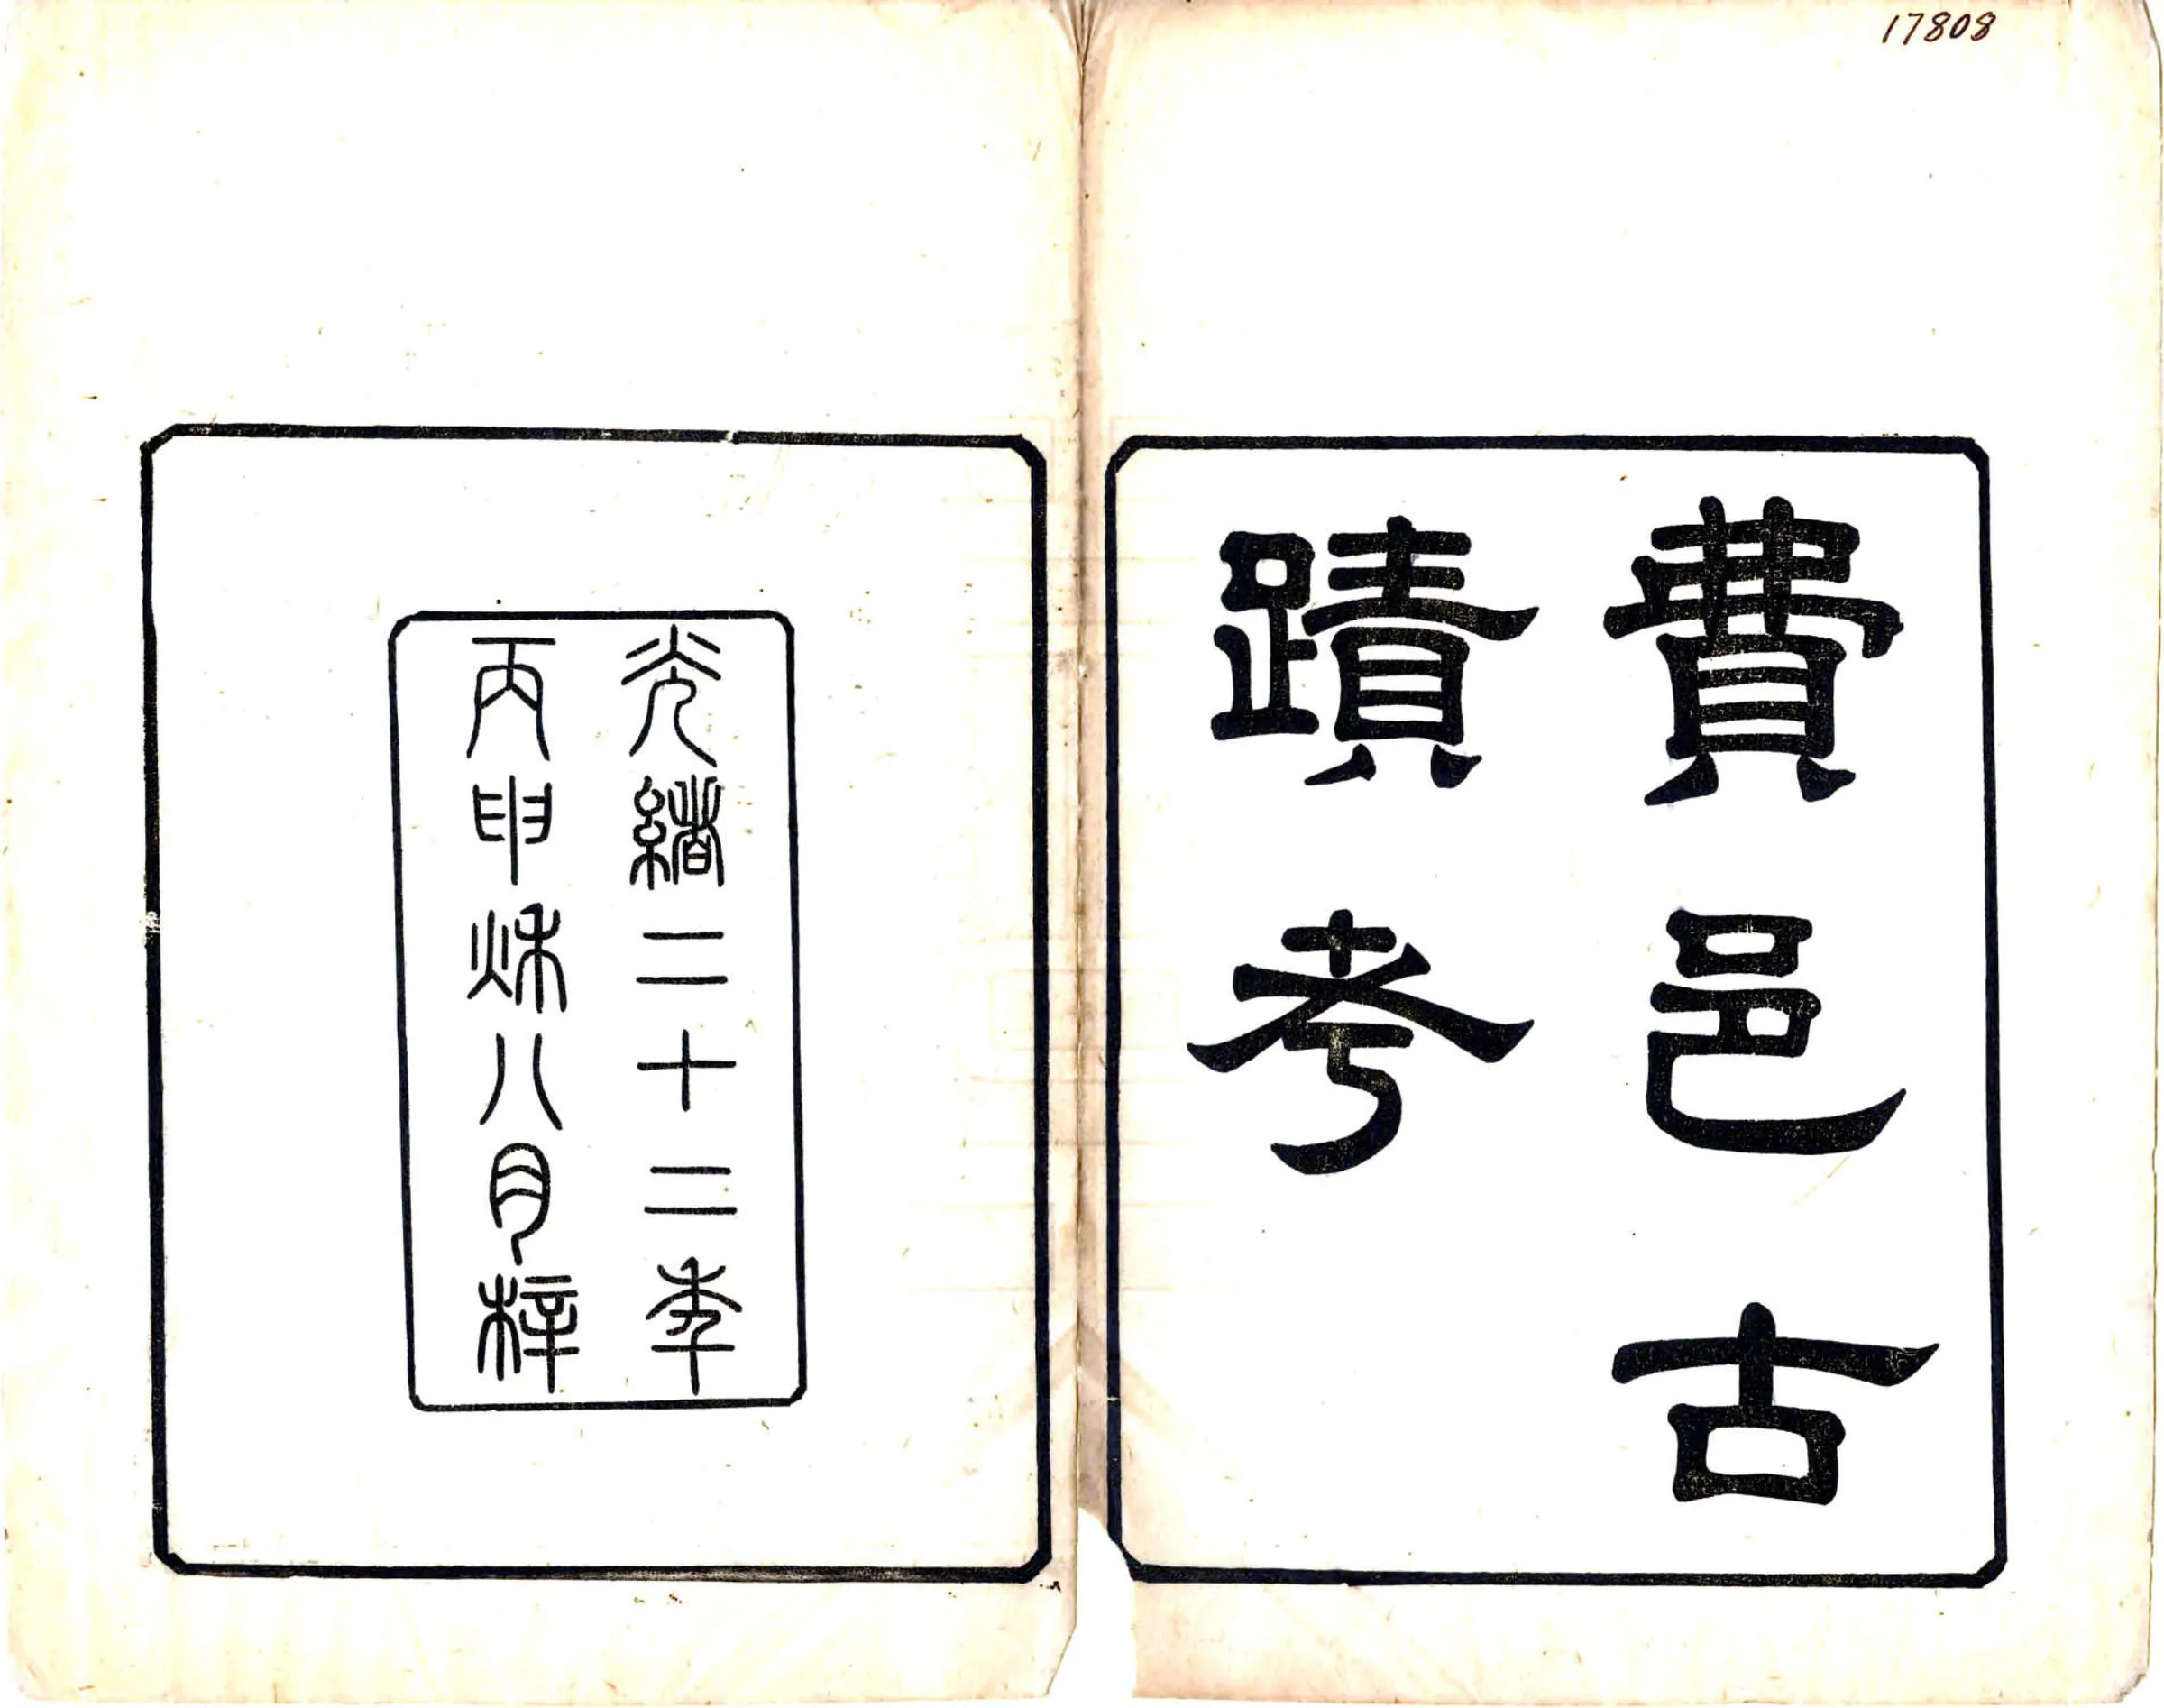 17808
費邑古
蹟考
光緒二十二年
丙申秌八月梓